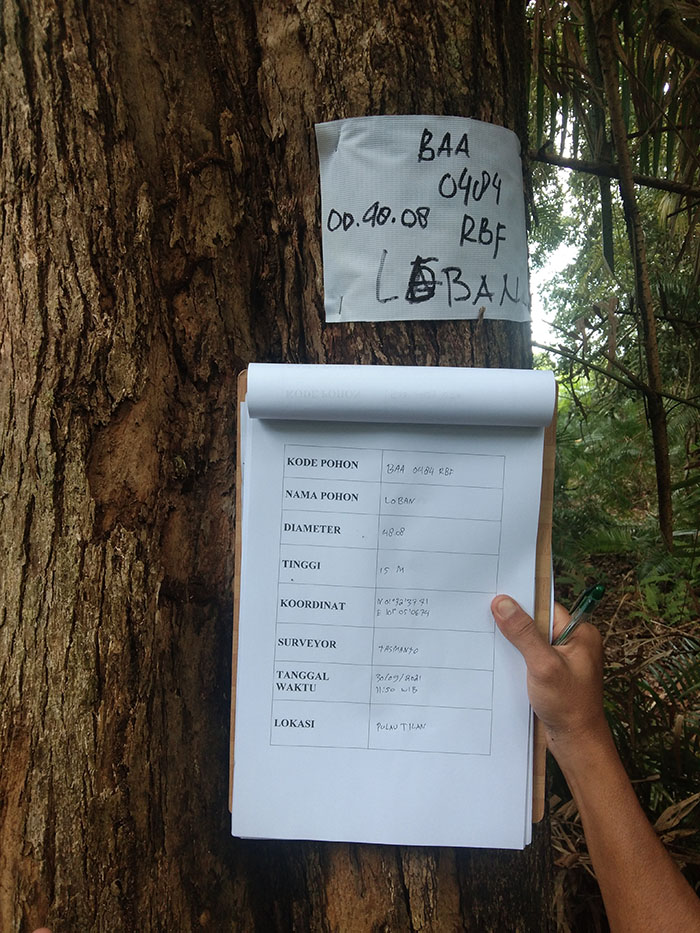 BAA
0484
00.48.08 RBF
LOBAN
KODE POHON BAA 0484 RBF
NAMA POHON LOBAN
DIAMETER 48.08
TINGGI 15 M
KOORDINAT
SURVEYOR TASMANTO
TANGGAL 30/09/2021
WAKTU 11:50 WIB
LOKASI PULAU TILAN